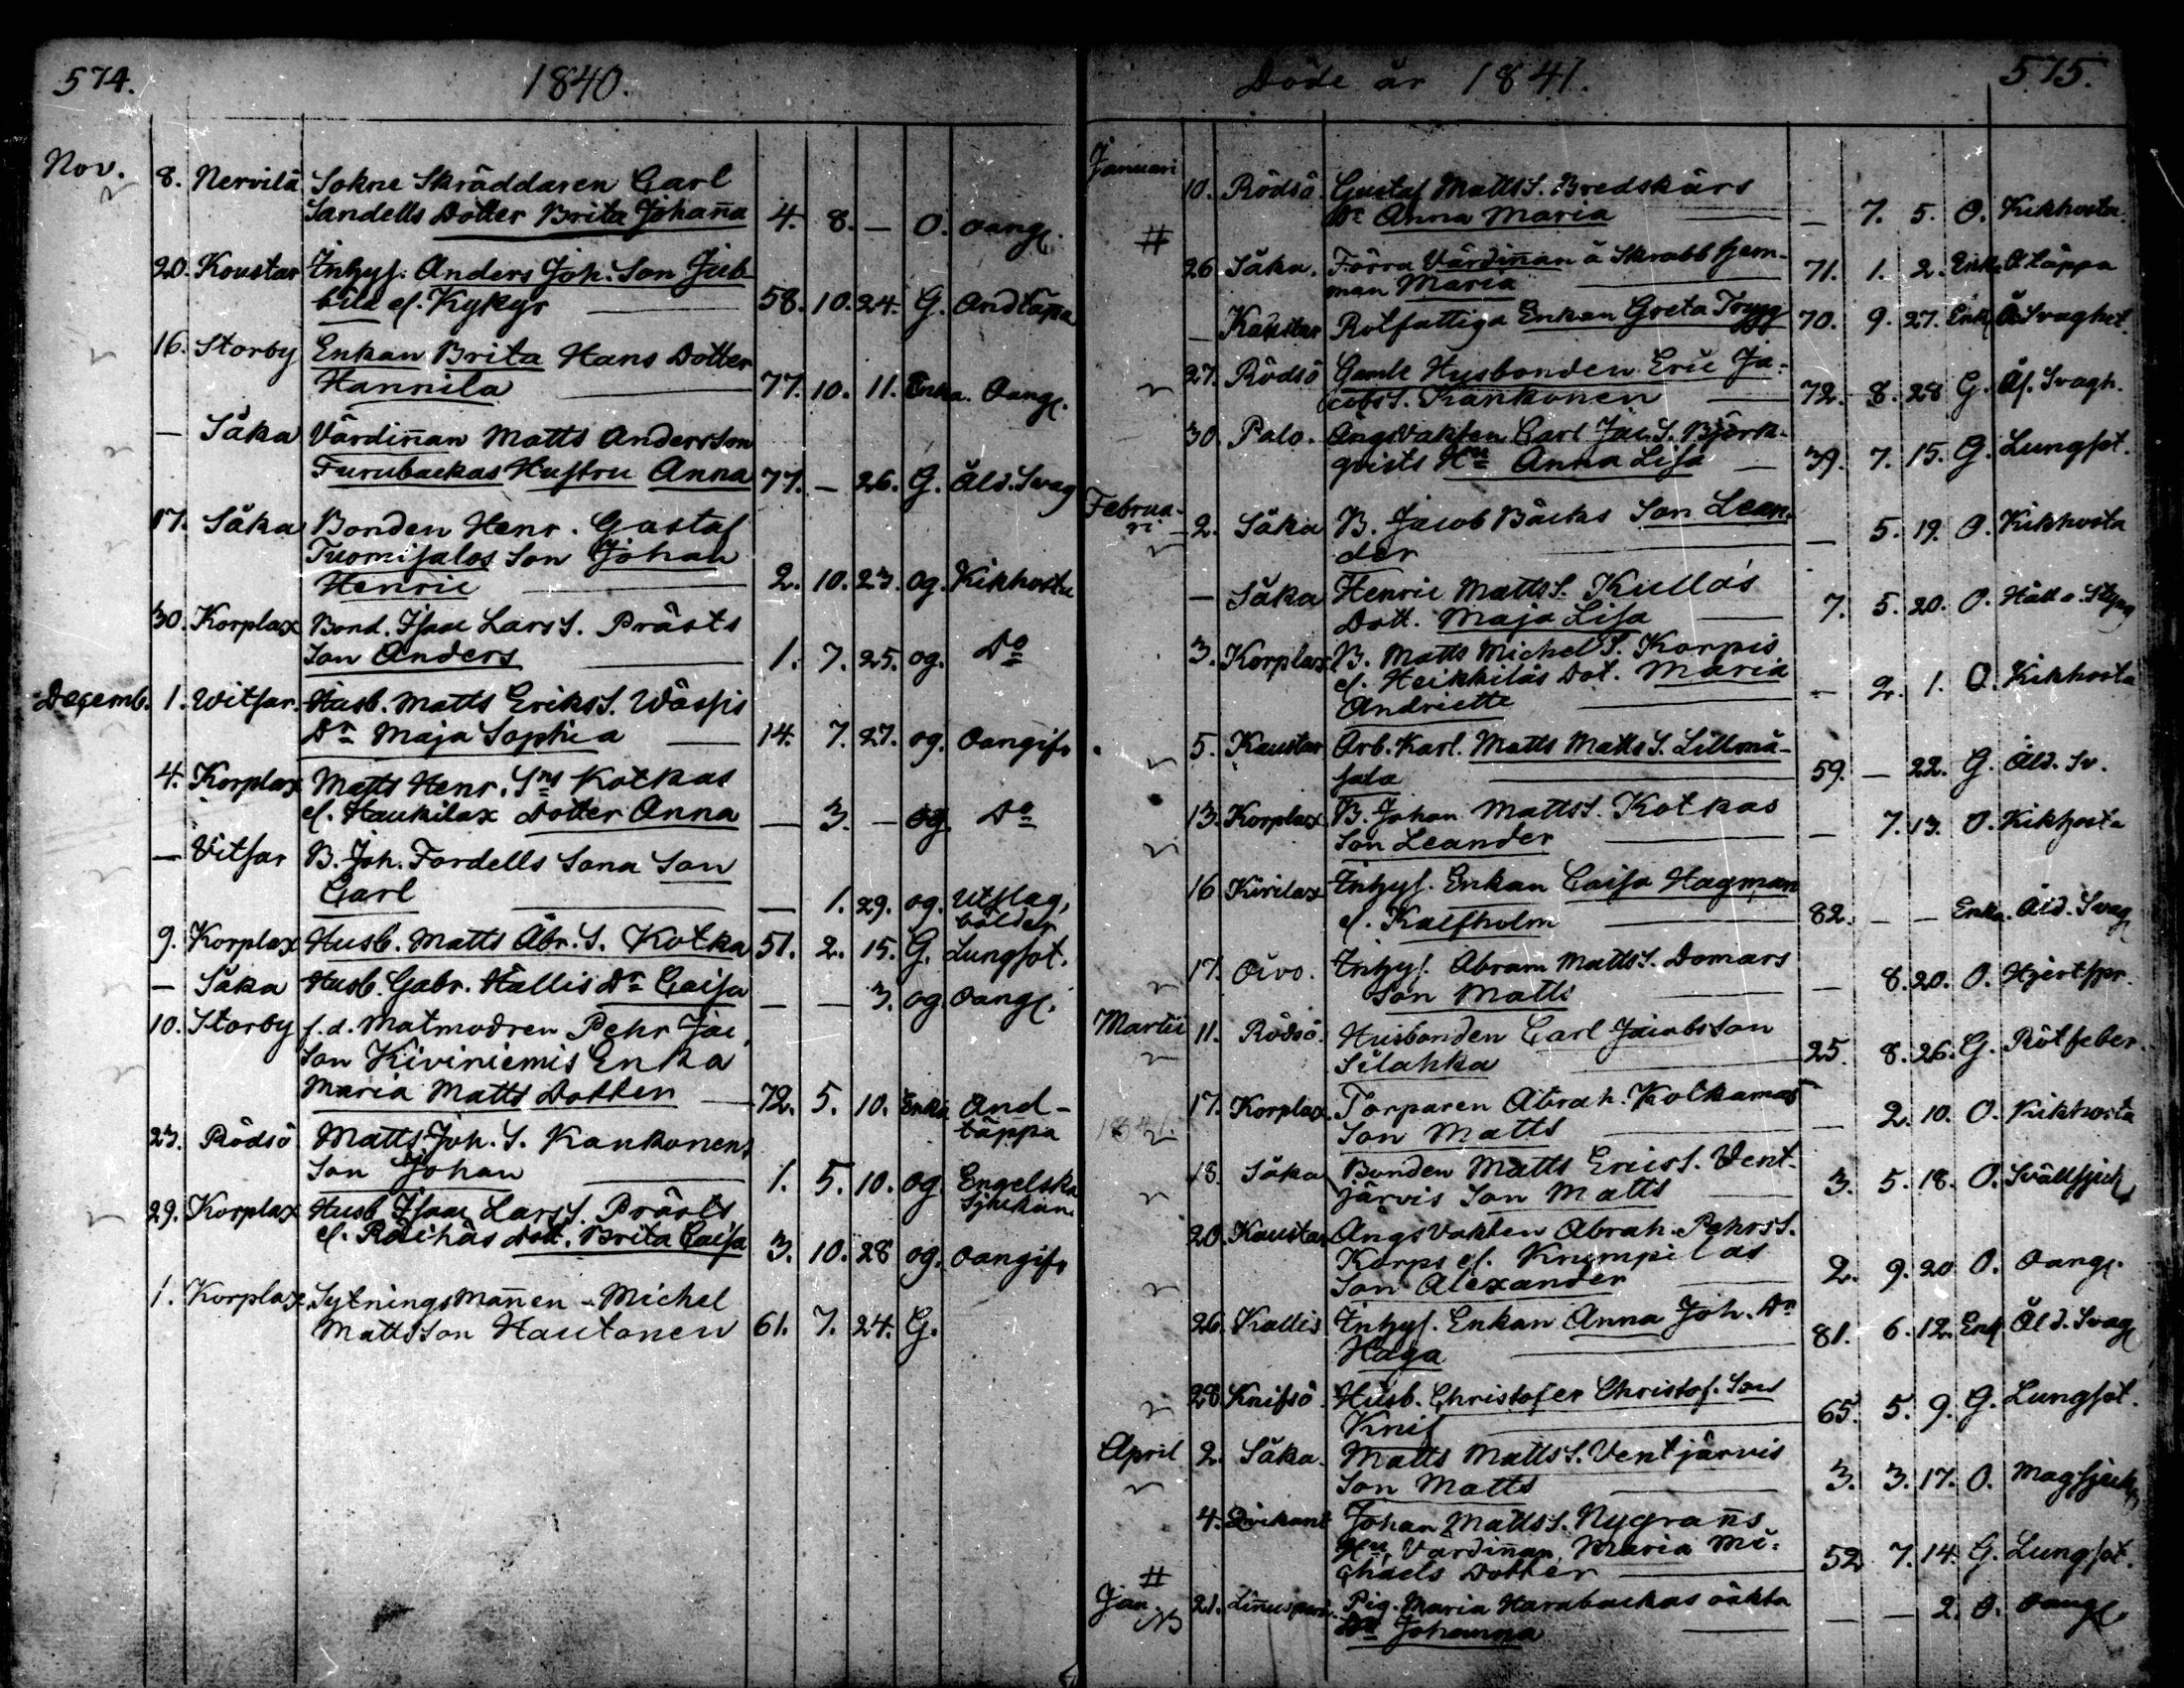 574.
1840.
Nov. 8. Nervilä Sokne Skräddaren Carl
Sandells Dotter Brita Johan̄a 4. 8. — O. oang.
20. Koustar Inhys. Anders Joh. Son Jub-
bila el. Kykyr 58. 10. 24. G. Andtäpa
16. Storby Enkan Brita Hans Dotter
Hannila 77. 10. 11. Enka. Oang.
— Såka Värdin̄an Matts Andersson
Furubackas Hustru Anna 77. — 26. G. Åld. Svag
17. Såka Bonden Henr. Gustaf
Tuomisalos Son Johan
Henric 2. 10. 23. og. Kikhosta
30. Korplax Bond. Isaac Lars S. Prästs
Son Anders 1. 7. 25. og. Do
Decemb. 1. Witsar. Husb. Matts Eriks S. Wässis
Dr Maja Sophia 14. 7. 27. og. Oangifv
4. Korplax Matts Henr. Sns Kotkas
el. Haukilax Dotter Anna — 3. — og. Do
— Vitsar B. Joh. Fordells Sona Son
Carl — 1. 29. og. Utslag,
bölder
9. Korplax Husb. Matts Abr. S. Kotka 51. 2. 15. G. Lungsot.
— Såka Husb. Gabr. Hällis Dr Caisa — — 3. og. Oang.
10. Storby f.d. Matmodren Pehr Jac
Son Kiviniemis Enka
Maria Matts Dotter 72. 5. 10. Enka And-
täppa
23. Rödsö Matts Joh. S. Kankonens
Son Johan 1. 5. 10. og. Engelska
Sjukan
29. Korplax Husb Isaac Lars S. Prästs
el. Räihäs Dott. Brita Caisa 3. 10. 28 og. oangifv
1. Korplax Sytningsman̄en - Michel
Mattsson Hautonen 61. 7. 24. G.
Döde år 1841.
575.
Januari
10. Rödsö Gustaf Matts S. Bredskärs
Dr Anna Maria — 7. 5. O. Kikhosta
# 26 Såka. Förra Värdin̄an å Skrabb hem-
man Maria 71. 1. 2. Enk. A. täppa
— Kaustar Rotfattiga Enkan Greta Trygg 70. 9. 27. Enk. Å. Svaghet.
27. Rödsö Gamle Husbonden Eric Ja-
cobs S. Kankonen 72. 8. 28 G. Ål. Svagh.
30. Palo. Ängsvakten Carl Jac. S. Björk-
qvists Hru Anna Lisa 39. 7. 15. G. Lungsot.
Februa-
ri 2. Såka B. Jacob Bäcks Son Lean-
der — 5. 19. O. Kikhosta
— Såka Henric Matts S. Kullås
Dott. Maja Lisa 7. 5. 20. O. Håll o. Styng
3. Korplax B. Matts Michel S. Korpis
el. Heikkiläs Dot. Maria
Andriette — 2. 1. O. Kikhosta
5. Kaustar Arb. Karl. Matts Matts S. Lillmå-
sala 59. — 22. G. Åld. Sv.
13. Korplax B. Johan Matts S. Kotkas
Son Leander — 7. 13. O. Kikhosta
16 Kivilax Inhys. Enkan Caisa Hagman
el. Kalfholm 82. — — Enka. Åld. Svag
17. Oivo. Inhys. Abram Matts S. Domars
Son Matts — 8. 20. O. Hjertspr.
Martii 11. Rödsö. Husbonden Carl Jacobsson
Silahka 25. 8. 26. G. Rötfeber.
1841. 17. Korplax. Torparen Abrah. Kotkamas
Son Matts — 2. 10. O. Kikhosta
18. Såka Bonden Matts Erics S. Vent-
järvis Son Matts 3. 5. 18. O. Svällsjuk
20. Kaustar Ängsvakten Abrah. Pehrs S.
Korps el. Knumpilas
Son Alexander 2. 9. 20 O. Oang.
26. Kallis Inhys. Enkan Anna Joh. Dr
Haga 81. 6. 12. Enk Åld. Svag
28 Knifsö. Husb. Christofer Christof. Son
Knif 65. 5. 9. G. Lungsot.
April 2. Såka. Matts Matts S. Ventjärvis
Son Matts 3. 3. 17. O. Magsjuk
4. Qvikant Johan Matts S. Nygran̄s
Hru, Värdin̄an, Maria Mi-
chaels Dotter 52 7. 14. G. Lungsot.
# Jan. NB 21. Linusperä. Pig. Maria Harabackas oäkta
Dr Johanna — — 2. O. Oang.